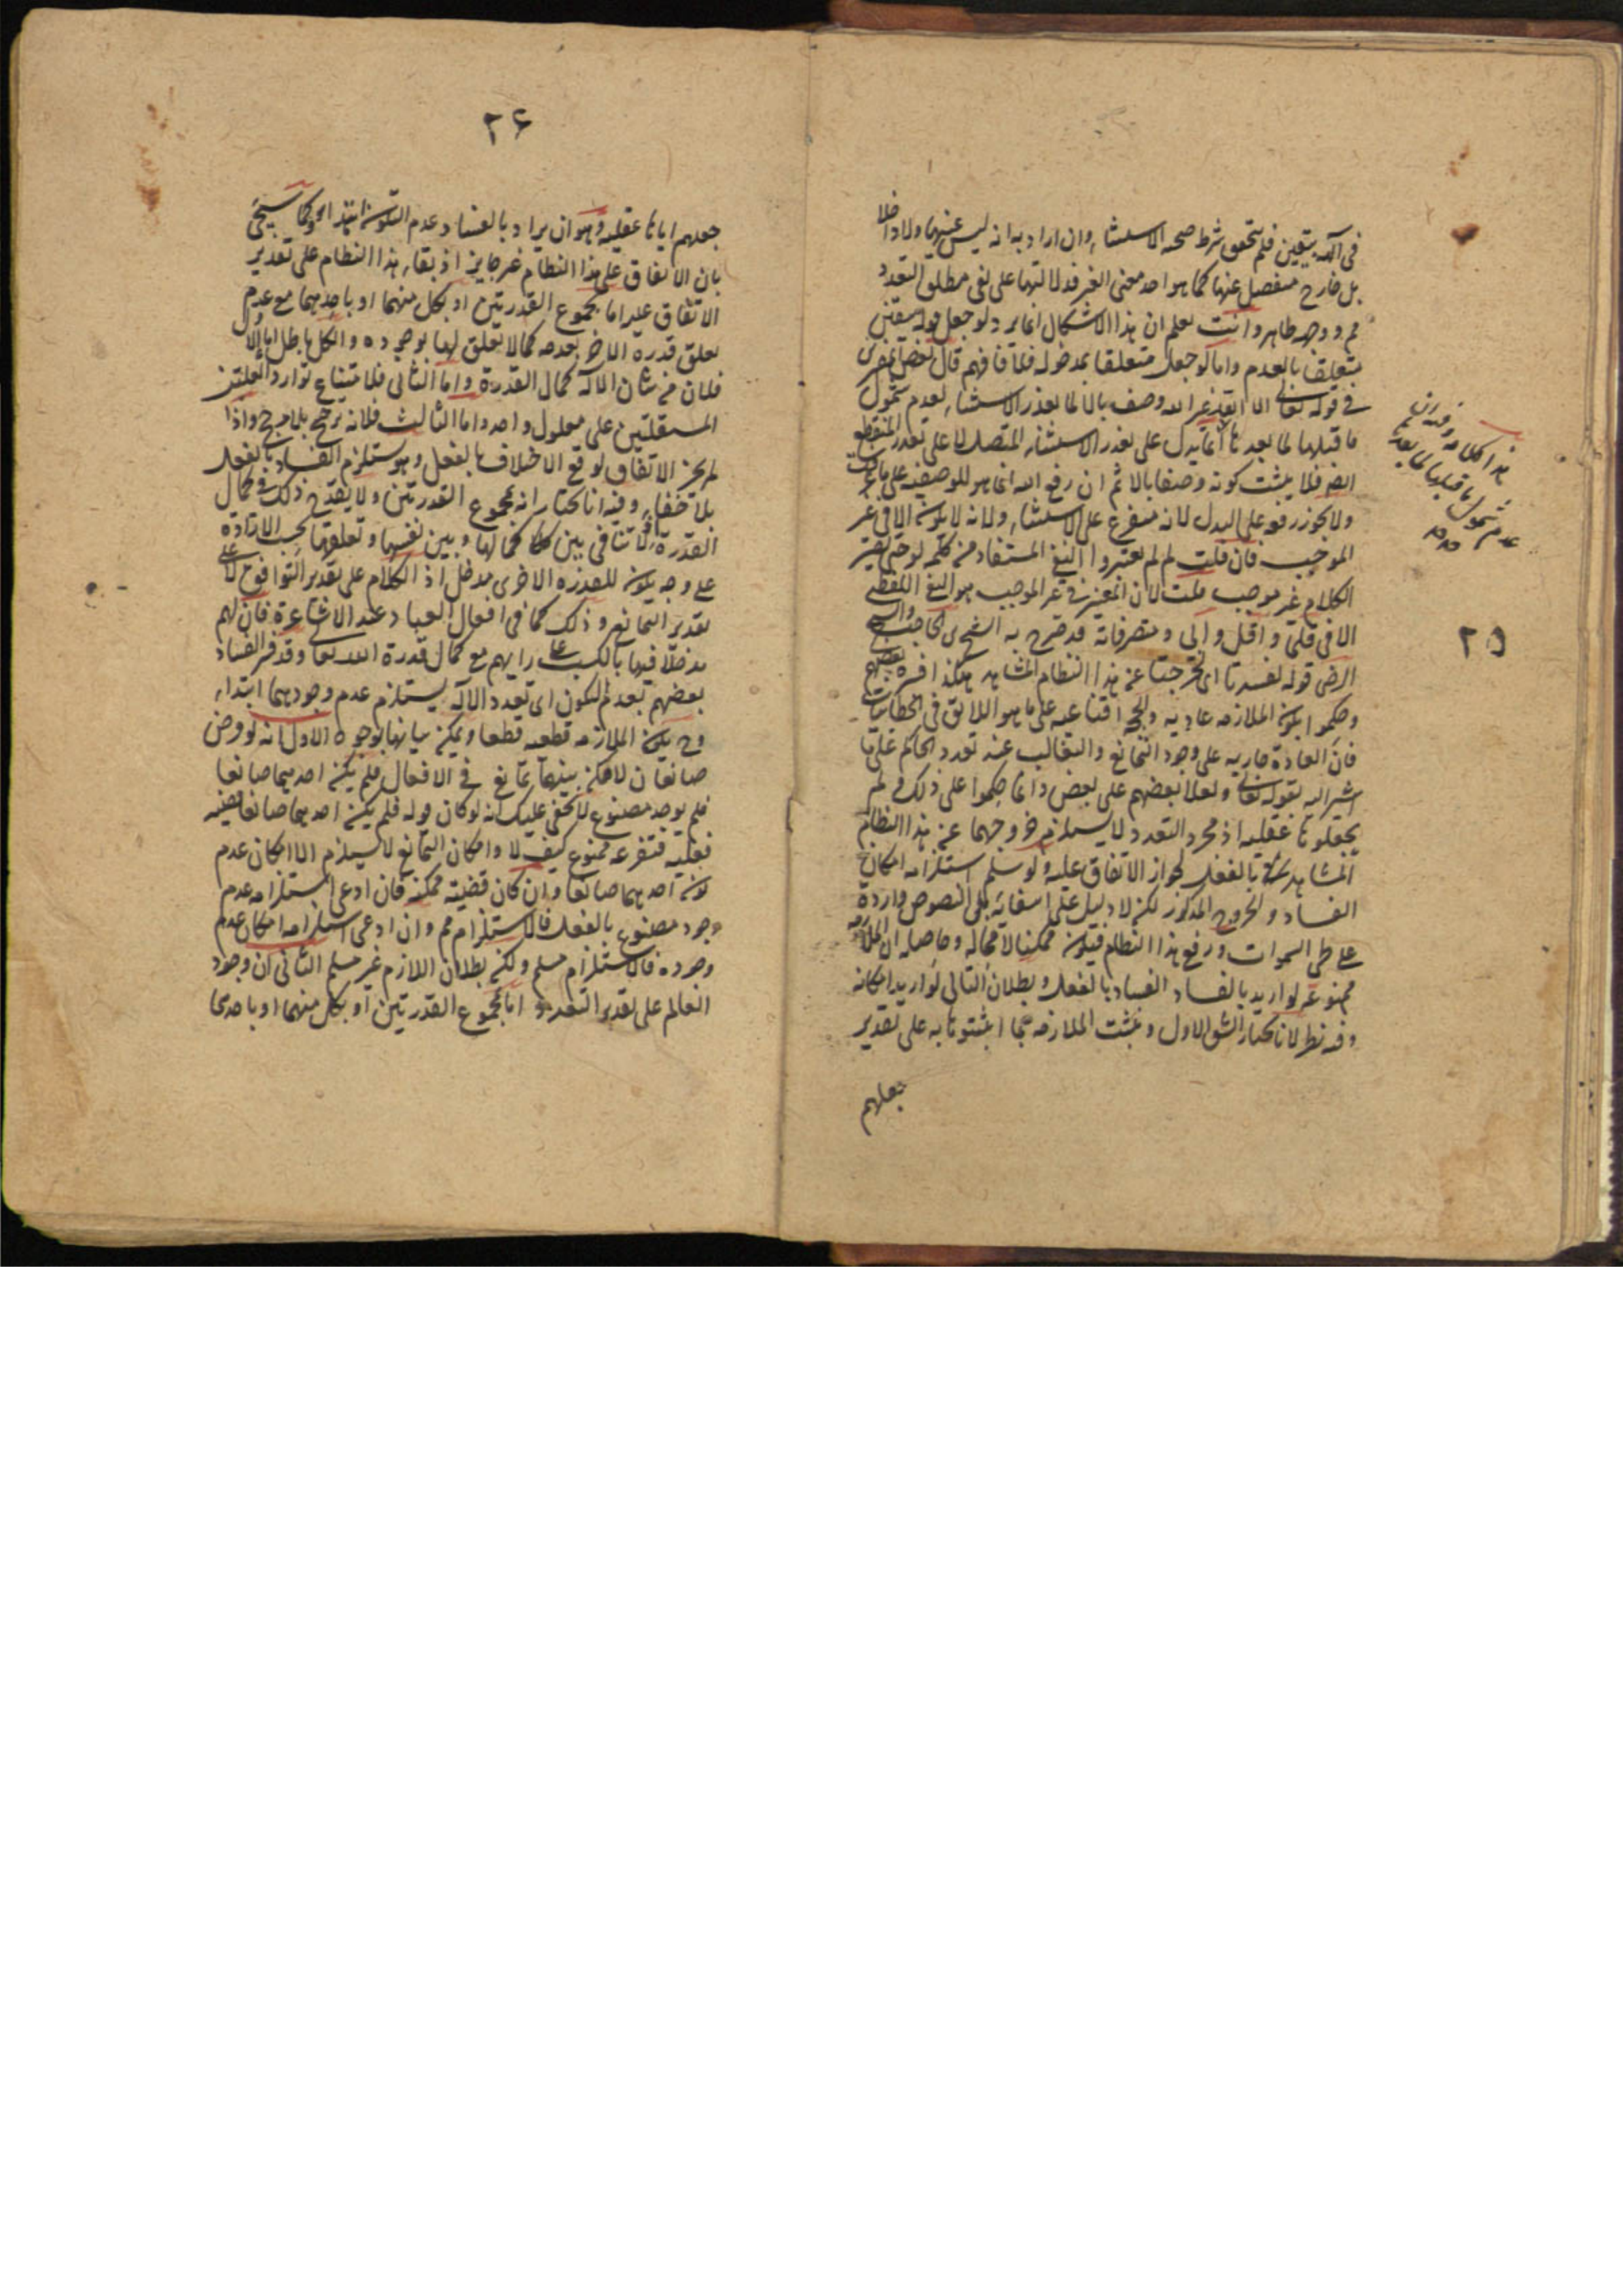 في آلهة بيقين فلم يتحقق شرط صحه الاستثناء وان اراد به انه ليس عينهما ولا داخلا
بل خارج منفصل عنها كما هو احد معنى الغير فدلالتها على نفى مطلق التعدد
مم ووجهه ظاهر وانت تعلم ان هذا الاشكال انما يرد لو جعل قوله بيقين
متعلقا بالعدم واما لو جعل متعلقا بمدخوله فلا فافهم قال بعض
في قوله تعالى الا الله غير الله وصف بالا لما تعذر الاستثناء لعدم شمول
ما قبلها لما بعدها انما يدل على تعذر الاستثناء المتصل لا على تعذر المنقطع
ايضا فلا يثبت كونه وصفا بالا ثم ان رفع الله انما هو للوصفيه على ما
ولا يجوز رفعه على البدل لانه متفرع على الاستثناء ولانه لا يكون الا في غير
الموجب فان قلت لم لم يعتبروا النفي المستفاد من كلمه لو حتى يصير
الكلام غير موجب قلت لان المعتبر في غير الموجب هو النفي اللفظي
الا في قلى واقل وابى ومتصرفاته قد صرح به الشيخ ابن الحاجب والشيخ
الرضى قوله لفسدتا اى لخرجتا عن هذا النظام المشاهد هكذا فسره بعضهم
وحكموا بكون الملازمه عاديه والحجه اقناعيه على ما هو اللائق في الخطابيات
فان العادة جاريه على وجود التمانع والتغالب عند تعدد الحاكم على ما
اشير اليه بقوله تعالى ولعلا بعضهم على بعض وانما حكموا على ذلك ولم
يجعلوها عقليه اذ مجرد التعدد لا يستلزم خروجهما عن هذا النظام
المشاهد بالفعل لجواز الاتفاق عليه ولو سلم استلزامه امكان
الفساد والخروج المذكور لكن لا دليل على انتفائه بل النصوص واردة
على طى السموات ورفع هذا النظام فيكون ممكنا لا محاله وحاصله ان الملازمه
ممنوعه لو اريد بالفساد الفساد بالفعل وبطلان التالى لو اريد امكانه
وفيه نظر لانا نختار الشق الاول ونثبت الملازمه بما اثبتوها به على تقدير
جعلهم
هذا الكلام
عدم شمول ما قبلها لما بعدها
٢٥
٢٦
جعلهم اياها عقليه وهو ان يراد بالفساد عدم التكون ابتداء كما سيجئ
بان الاتفاق على هذا النظام غير جايز اذ بقاء هذا النظام على تقدير
الاتفاق عليه اما بمجموع القدرتين او بكل منهما او باحديهما مع عدم
تعلق قدرة الاخر بعدمه كما لا يتعلق لها بوجوده والكل باطل اما الاول
فلان من شان الاله كمال القدرة واما الثانى فلامتناع توارد العلتين
المستقلتين على معلول واحد واما الثالث فلانه ترجح بلا مرجح واذا
لم يجز الاتفاق لوقع الاختلاف بالفعل وهو يستلزم الفساد بالفعل
بلا خفاء وفيه انا نختار انه بمجموع القدرتين ولا يقدح ذلك في كمال
القدرة اذ لا تنافى بين كمالها وبين نفسها وتعلقها بحسب الارادة
على وجه يكون للقدره الاخرى مدخل اذ الكلام على تقدير التوافق لا على
تقدير التمانع وذلك كما في افعال العباد عند الاشاعرة فان لهم
مدخلا فيها بالكسب على رايهم مع كمال قدرة الله تعالى وقد فسر الفساد
بعضهم بعدم التكون اى تعدد الاله يستلزم عدم وجودهما ابتداء
وح يكون الملازمه قطعيه قطعا ويمكن بيانها بوجوه الاول انه لو فرض
صانعان لامكن بينهما تمانع في الافعال فلم يكن احديهما صانعا
فلم يوجد مصنوع لا يخفى عليك انه لو كان قوله فلم يكن احديهما صانعا قضيه
فعليه فتفرعه ممنوع كيف لا وامكان التمانع لا يستلزم الا امكان عدم
كون احديهما صانعا وان كان قضيته ممكنه فان ادعى استلزامه عدم
وجود مصنوع بالفعل فالاستلزام مم وان ادعى استلزامه امكان عدم
وجوده فالاستلزام مسلم ولكن بطلان اللازم غير مسلم الثانى ان وجود
العالم على تقدير التعدد اما بمجموع القدرتين او بكل منهما او باحدى